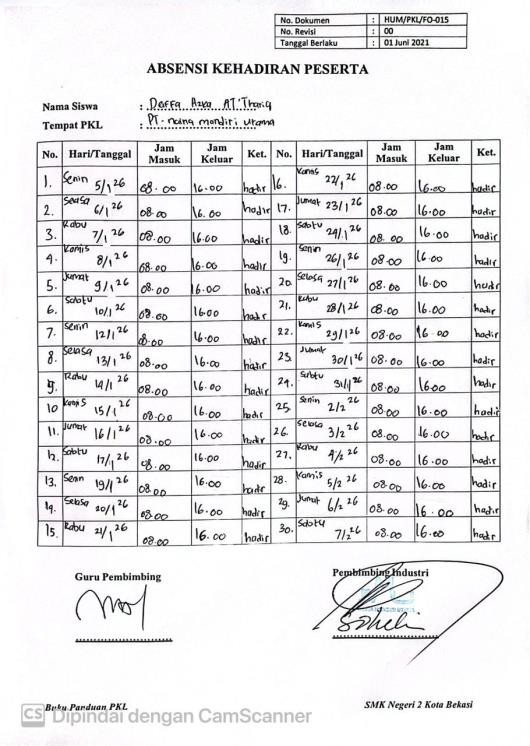 No. Dokumen : HUM/PKL/FO-015
No. Revisi : 00
Tanggal Berlaku : 01 Juni 2021
ABSENSI KEHADIRAN PESERTA
Nama Siswa : Daffa Azka AT.Thariq
Tempat PKL : PT. mandiri utama
No. Hari/Tanggal Jam Masuk Jam Keluar Ket. No. Hari/Tanggal Jam Masuk Jam Keluar Ket.
1. Senin 5/1 26 08.00 16.00 hadir 16. Kamis 22/1 26 08.00 16.00 hadir
2. Selasa 6/1 26 08.00 16.00 hadir 17. Jumat 23/1 26 08.00 16.00 hadir
3. Rabu 7/1 26 08.00 16.00 hadir 18. Sabtu 24/1 26 08.00 16.00 hadir
4. Kamis 8/1 26 08.00 16.00 hadir 19. Senin 26/1 26 08.00 16.00 hadir
5. Jumat 9/1 26 08.00 16.00 hadir 20. Selasa 27/1 26 08.00 16.00 hadir
6. Sabtu 10/1 26 08.00 16.00 hadir 21. Rabu 28/1 26 08.00 16.00 hadir
7. Senin 12/1 26 08.00 16.00 hadir 22. Kamis 29/1 26 08.00 16.00 hadir
8. Selasa 13/1 26 08.00 16.00 hadir 23. Jumat 30/1 26 08.00 16.00 hadir
9. Rabu 14/1 26 08.00 16.00 hadir 24. Sabtu 31/1 26 08.00 16.00 hadir
10 Kamis 15/1 26 08.00 16.00 hadir 25. Senin 2/2 26 08.00 16.00 hadir
11. Jumat 16/1 26 08.00 16.00 hadir 26. Selasa 3/2 26 08.00 16.00 hadir
12. Sabtu 17/1 26 08.00 16.00 hadir 27. Rabu 4/2 26 08.00 16.00 hadir
13. Senin 19/1 26 08.00 16.00 hadir 28. Kamis 5/2 26 08.00 16.00 hadir
14. Selasa 20/1 26 08.00 16.00 hadir 29. Jumat 6/2 26 08.00 16.00 hadir
15. Rabu 21/1 26 08.00 16.00 hadir 30. Sabtu 7/2 26 08.00 16.00 hadir
Guru Pembimbing Pembimbing Industri
Buku Panduan PKL SMK Negeri 2 Kota Bekasi
CS Dipindai dengan CamScanner